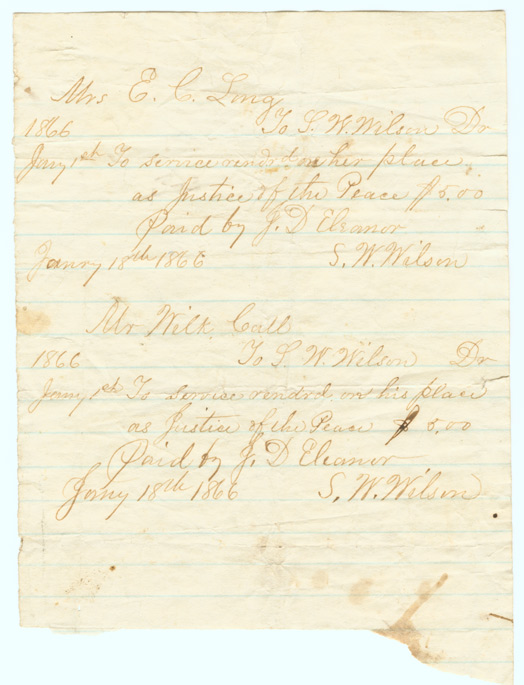 Mrs E. C. Long
1866 To S. W. Wilson Dr
Jany 1th To service rendrd on her place
as Justice of the Peace $5.00
Paid by J. D Eleanor
Janry 18th 1866 S. W. Wilson
Mr Wilk. Call
1866 To S. W. Wilson Dr
Jany 1th To service rendrd on his place
as Justice of the Peace $5.00
Paid by J. D Eleanor
Jany 18th 1866 S. W. Wilson